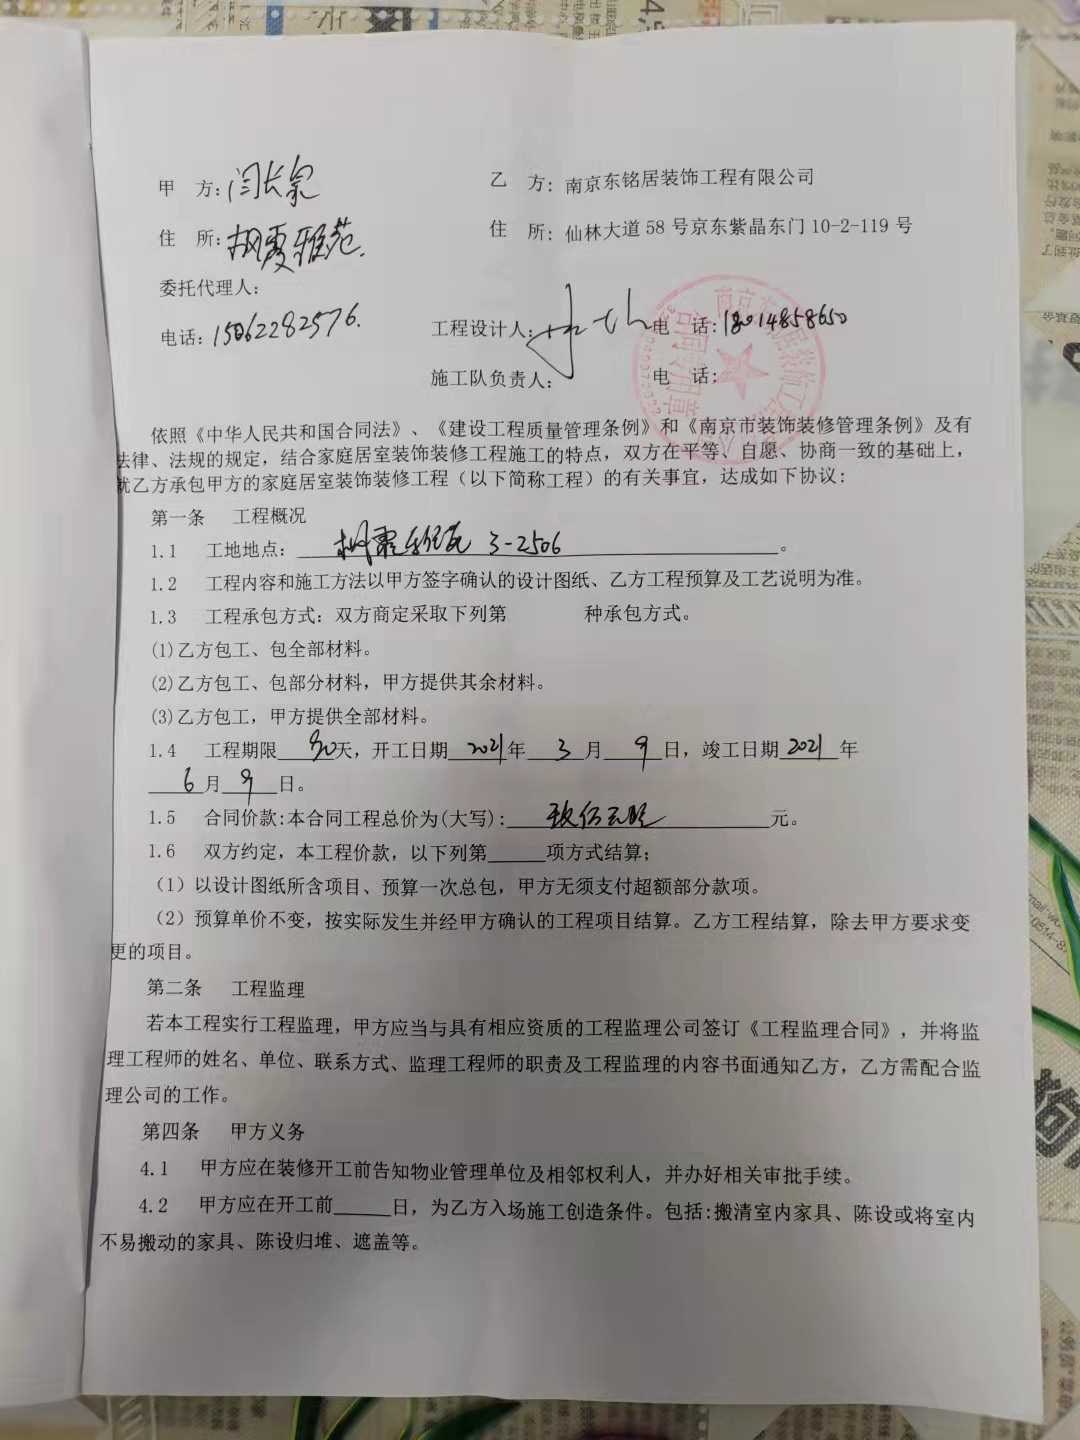 甲 方: 闫长泉 乙 方: 南京东铭居装饰工程有限公司
住 所: 枫霞雅苑. 住 所: 仙林大道58号京东紫晶东门10-2-119号
委托代理人:
电话: 15062282576. 工程设计人: 电 话: 18014858650
施工队负责人: 电 话:
依照《中华人民共和国合同法》、《建设工程质量管理条例》和《南京市装饰装修管理条例》及有
法律、法规的规定，结合家庭居室装饰装修工程施工的特点，双方在平等、自愿、协商一致的基础上，
就乙方承包甲方的家庭居室装饰装修工程（以下简称工程）的有关事宜，达成如下协议:
第一条 工程概况
1.1 工地地点: 枫霞雅苑 3-2506 。
1.2 工程内容和施工方法以甲方签字确认的设计图纸、乙方工程预算及工艺说明为准。
1.3 工程承包方式: 双方商定采取下列第 种承包方式。
(1)乙方包工、包全部材料。
(2)乙方包工、包部分材料，甲方提供其余材料。
(3)乙方包工，甲方提供全部材料。
1.4 工程期限 90 天，开工日期 2021 年 3 月 9 日，竣工日期 2021 年
6 月 9 日。
1.5 合同价款:本合同工程总价为(大写): 元。
1.6 双方约定，本工程价款，以下列第______项方式结算;
（1）以设计图纸所含项目、预算一次总包，甲方无须支付超额部分款项。
（2）预算单价不变，按实际发生并经甲方确认的工程项目结算。乙方工程结算，除去甲方要求变
更的项目。
第二条 工程监理
若本工程实行工程监理，甲方应当与具有相应资质的工程监理公司签订《工程监理合同》，并将监
理工程师的姓名、单位、联系方式、监理工程师的职责及工程监理的内容书面通知乙方，乙方需配合监
理公司的工作。
第四条 甲方义务
4.1 甲方应在装修开工前告知物业管理单位及相邻权利人，并办好相关审批手续。
4.2 甲方应在开工前______日，为乙方入场施工创造条件。包括:搬清室内家具、陈设或将室内
不易搬动的家具、陈设归堆、遮盖等。